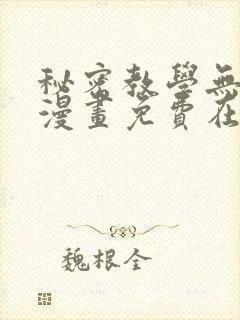 秘密教學無
漫畫免費在
魏根全